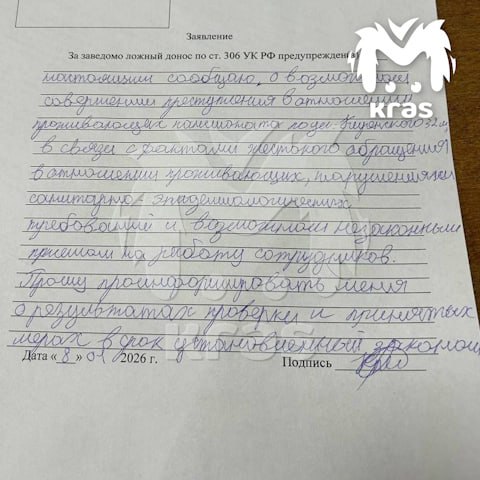 Заявление
За заведомо ложный донос по ст. 306 УК РФ предупрежден
настоящим сообщаю, о возможном
совершении преступления в отношении
проживающих пансионата Киренского 32
в связи с фактами жестокого обращения
в отношении проживающих, нарушения
санитарно-эпидемиологических
требований и возможным незаконным
приемом на работу сотрудников.
Прошу проинформировать меня
о результатах проверки и принятых
мерах в срок установленный законом
Дата « 8 » 01 2026 г. Подпись
kras
kras